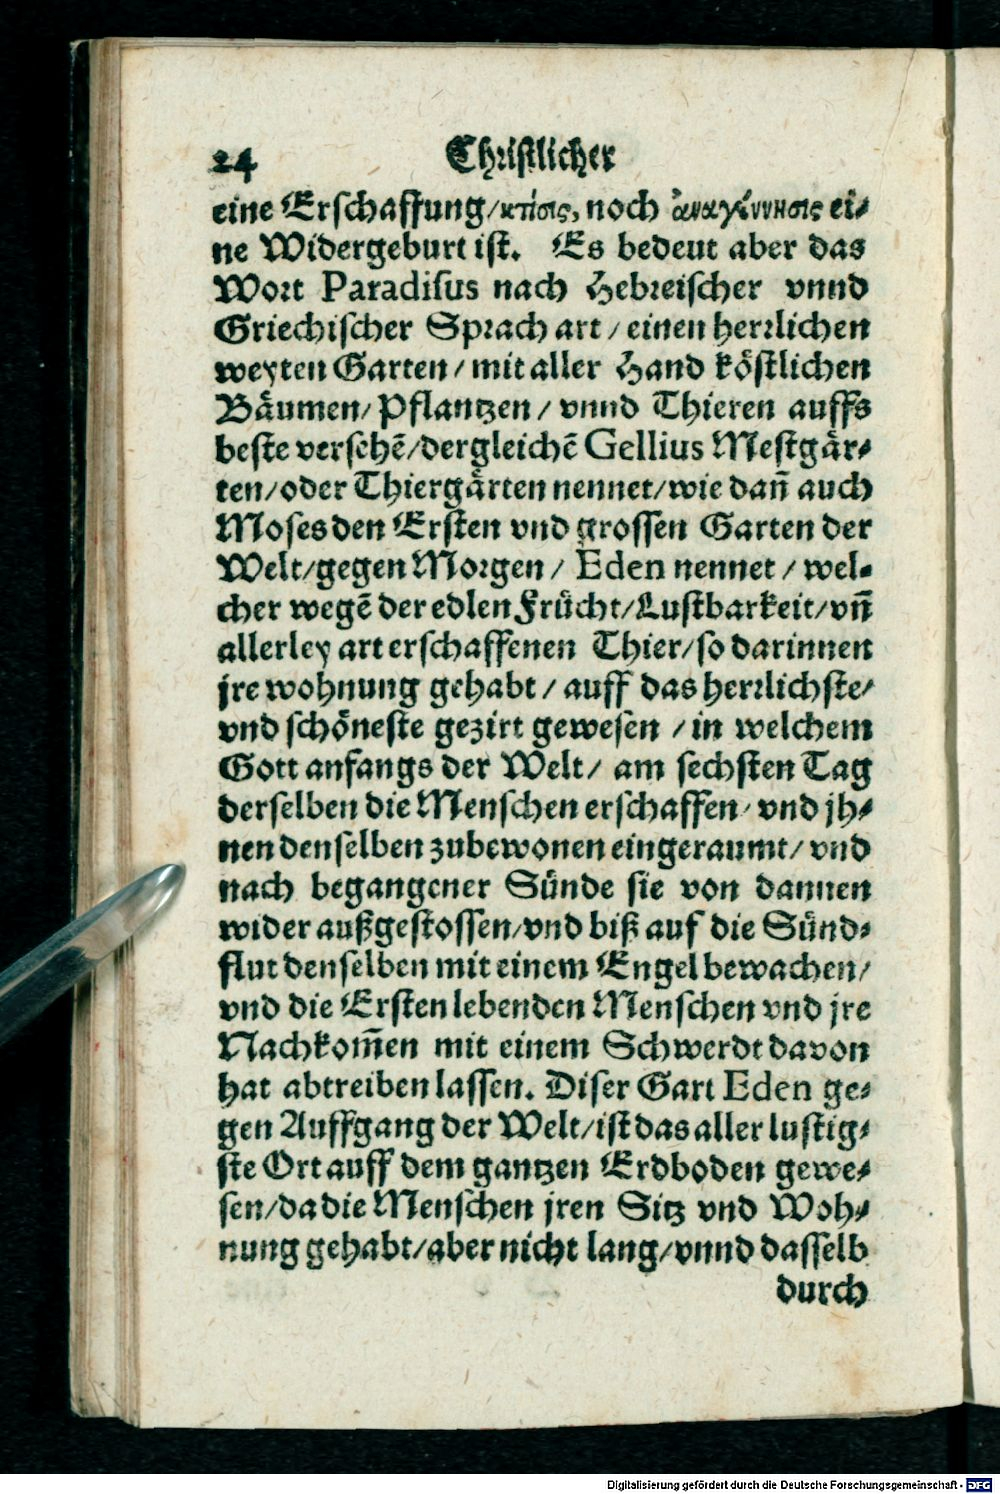 24 Christlicher
eine Erschaffung/ κτίσις, noch ἀναγέννησις ei⸗
ne Widergeburt ist. Es bedeut aber das
Wort Paradisus nach Hebreischer vnnd
Griechischer Sprach art / einen herrlichen
weyten Garten / mit aller Hand köstlichen
Bäumen/ Pflantzen / vnnd Thieren auffs
beste versehē/dergleichē Gellius Mestgär⸗
ten/oder Thiergärten nennet/wie dañ auch
Moses den Ersten vnd grossen Garten der
Welt/gegen Morgen / Eden nennet / wel⸗
cher wegē der edlen Frücht/Lustbarkeit/vñ
allerley art erschaffenen Thier/so darinnen
jre wohnung gehabt / auff das herrlichste/
vnd schöneste gezirt gewesen / in welchem
Gott anfangs der Welt/ am sechsten Tag
derselben die Menschen erschaffen/ vnd jh⸗
nen denselben zubewonen eingeraumt/ vnd
nach begangener Sünde sie von dannen
wider außgestossen/vnd biß auf die Sünd⸗
flut denselben mit einem Engel bewachen/
vnd die Ersten lebenden Menschen vnd jre
Nachkom̄en mit einem Schwerdt davon
hat abtreiben lassen. Diser Gart Eden ge⸗
gen Auffgang der Welt/ist das aller lustig⸗
ste Ort auff dem gantzen Erdboden gewe⸗
sen/da die Menschen jren Sitz vnd Woh⸗
nung gehabt/aber nicht lang/vnnd dasselb
durch
Digitalisierung gefördert durch die Deutsche Forschungsgemeinschaft - DFG